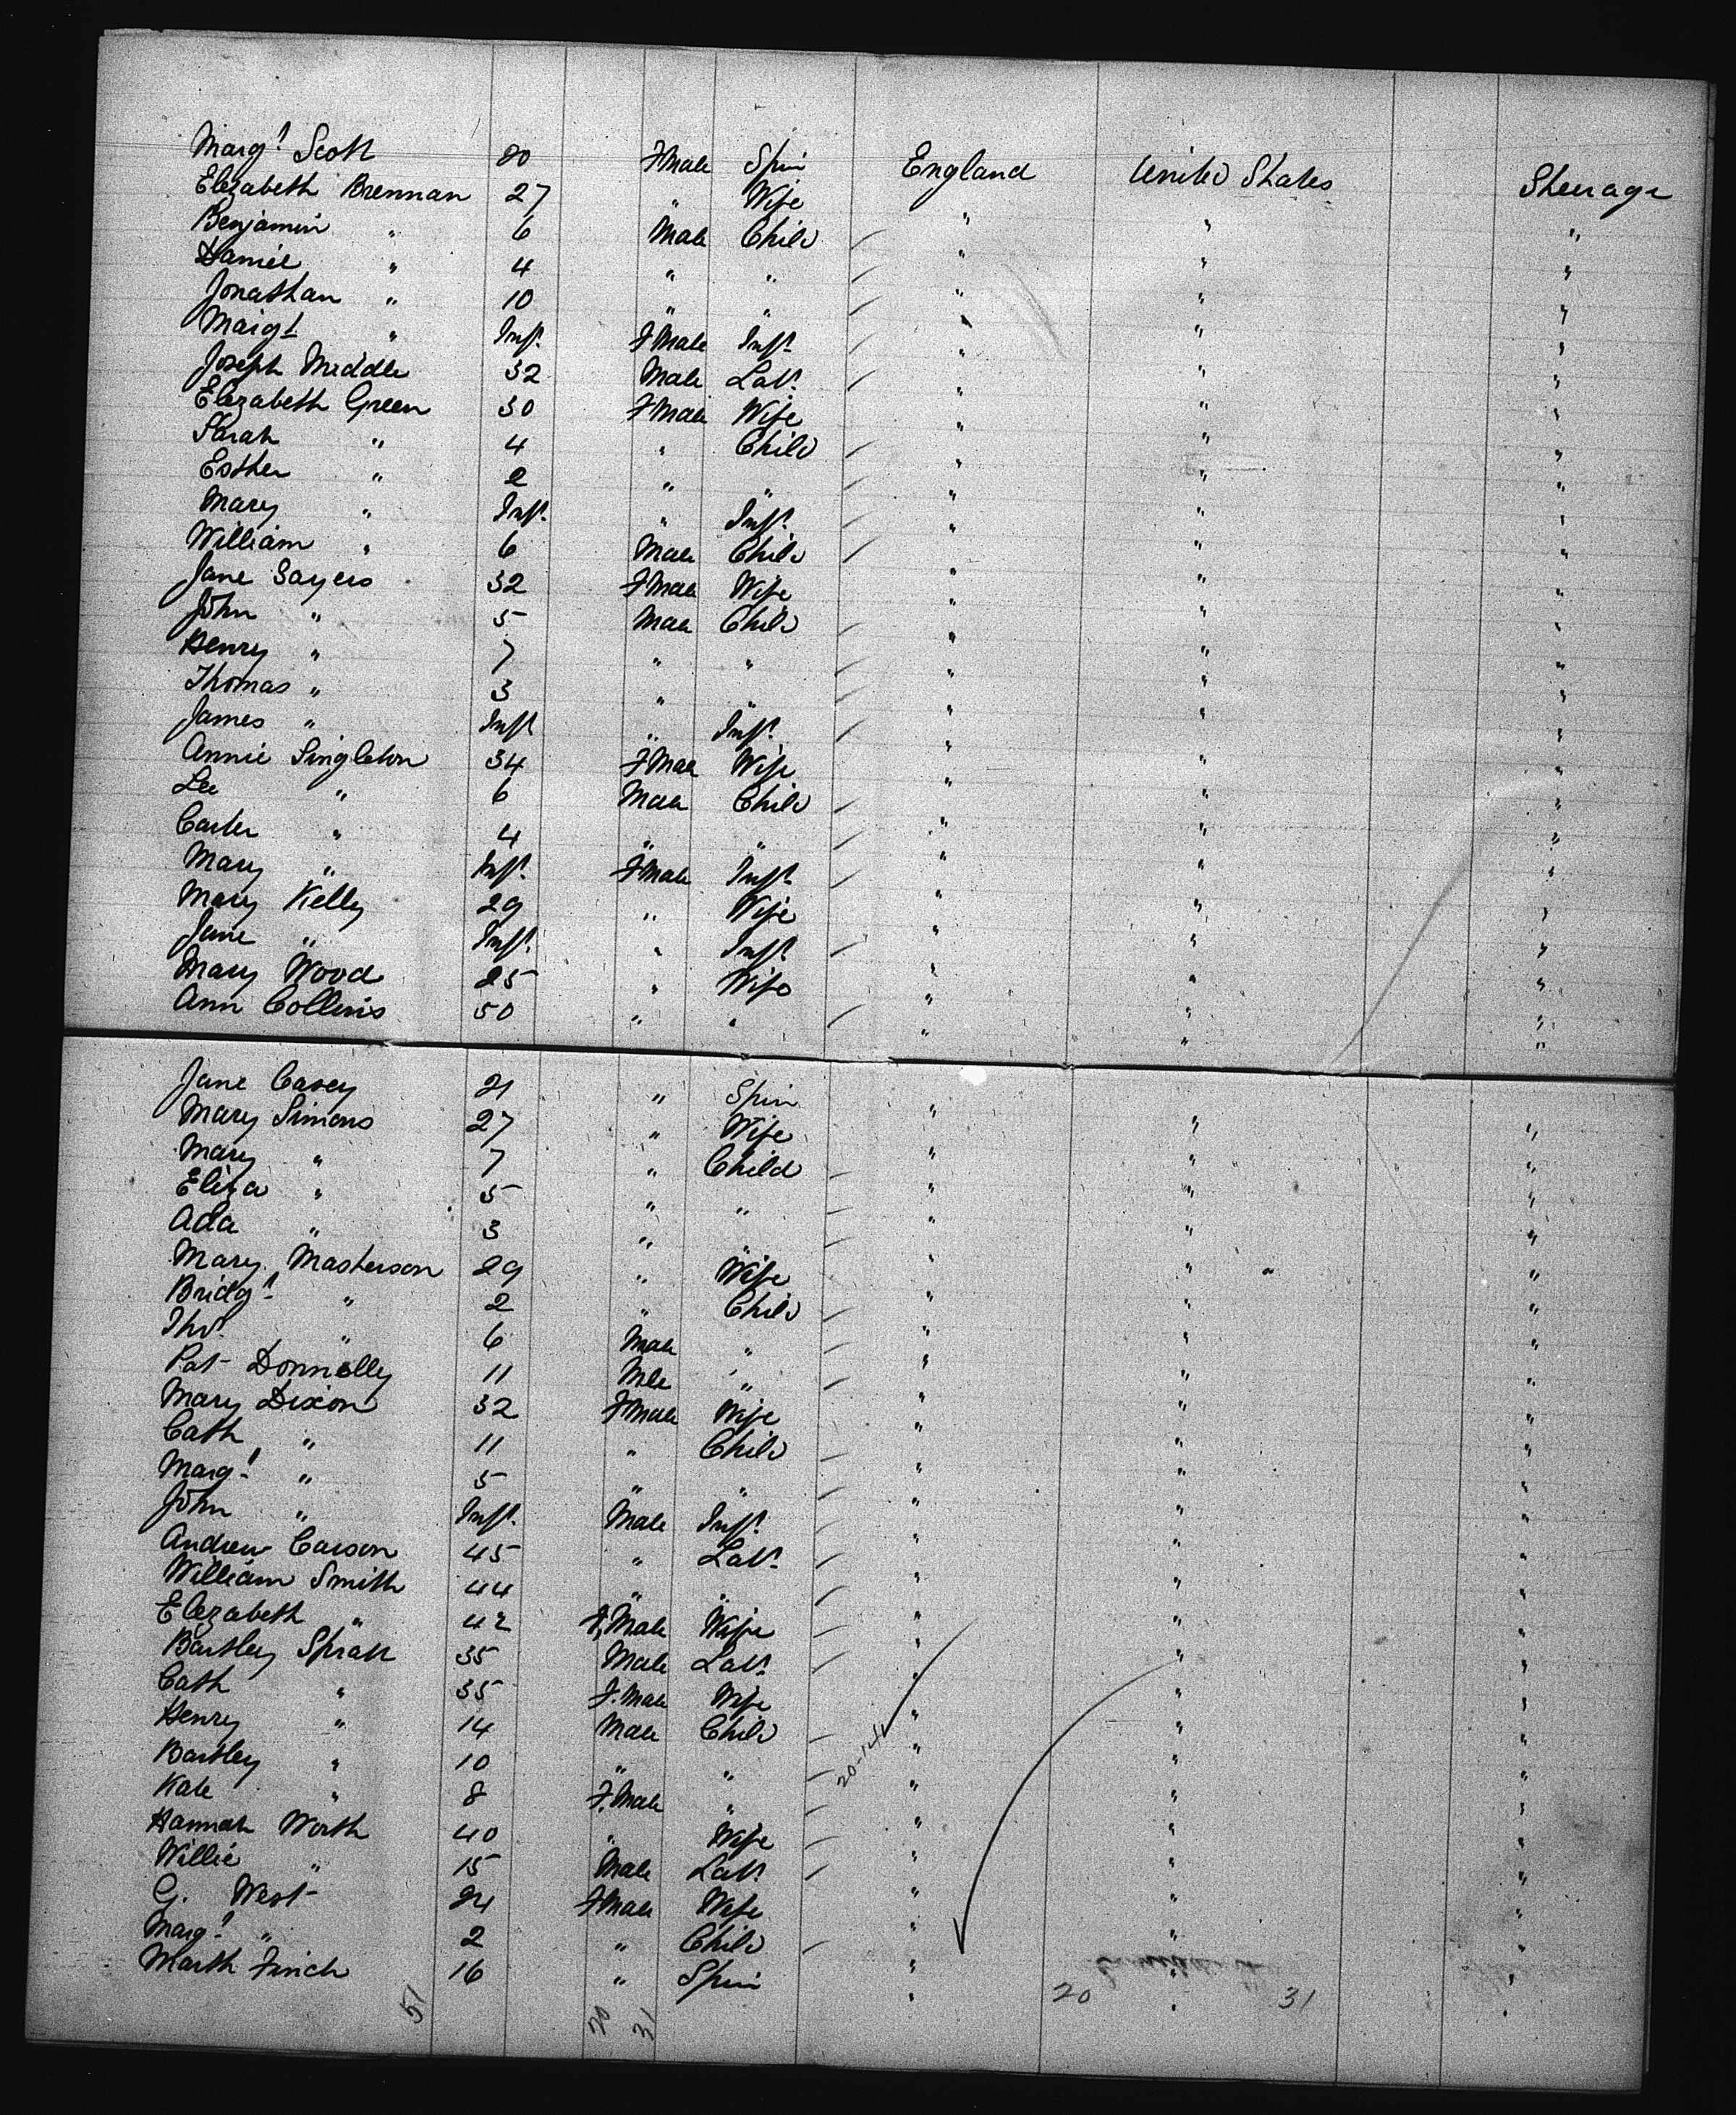 Margt. Scott 20 FMale Spin England United States Steerage
Elizabeth Brennan 27 " Wife " " "
Benjamin " 6 Male Child " " "
Daniel " 4 " " " " "
Jonathan " 10 " " " " "
Margt " Inft. FMale Inft. " " "
Joseph Middle 32 Male Labr. " " "
Elizabeth Green 30 FMale Wife " " "
Sarah " 4 " Child " " "
Esther " 2 " " " " "
Mary " Inft. " Inft. " " "
William " 6 Male Child " " "
Jane Sayers 32 FMale Wife " " "
John " 5 Male Child " " "
Henry " 7 " " " " "
Thomas " 3 " " " " "
James " Inft " Inft. " " "
Annie Singleton 34 FMale Wife " " "
Lee " 6 Male Child " " "
Carter " 4 " " " " "
Mary " Inft. FMale Inft. " " "
Mary Kelly 29 " Wife " " "
Jane " Inft. " Inft " " "
Mary Wood 25 " Wife " " "
Ann Collins 50 " " " " "
Jane Casey 21 " Spin " " "
Mary Simons 27 " Wife " " "
Mary " 7 " Child " " "
Eliza " 5 " " " " "
Ada " 3 " " " " "
Mary Masterson 29 " Wife " " "
Bridgt. " 2 " Child " " "
Thos. " 6 Male " " " "
Pat Donnelly 11 Mle " " " "
Mary Dixon 32 FMale Wife " " "
Cath " 11 " Child " " "
Margt. " 5 " " " " "
John " Inft. Male Inft. " " "
Andrew Carson 45 " Labr. " " "
William Smith 44 " " " " "
Elizabeth " 42 F.Male Wife " " "
Bartley Spratt 35 Male Labr. " " "
Cath " 35 F.Male Wife " " "
Henry " 14 Male Child " " "
Bartley " 10 " " 20-14 " " "
Kate " 8 F.Male " " " "
Hannah Worth 40 " Wife " " "
Willie " 15 Male Labr. " " "
G. West 24 FMale Wife " " "
Margt. " 2 " Child " " "
Marth Finch 16 " Spin " " "
51 20 31 20 31